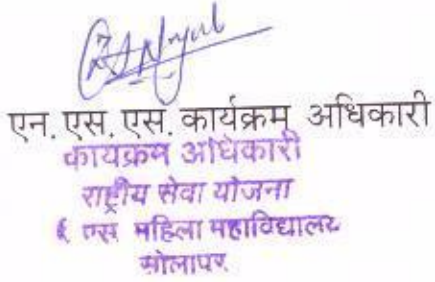 एन. एस. एस. कार्यक्रम अधिकारी
कार्यक्रम अधिकारी
राष्ट्रीय सेवा योजना
एस महिला महाविद्यालय
सोलापूर